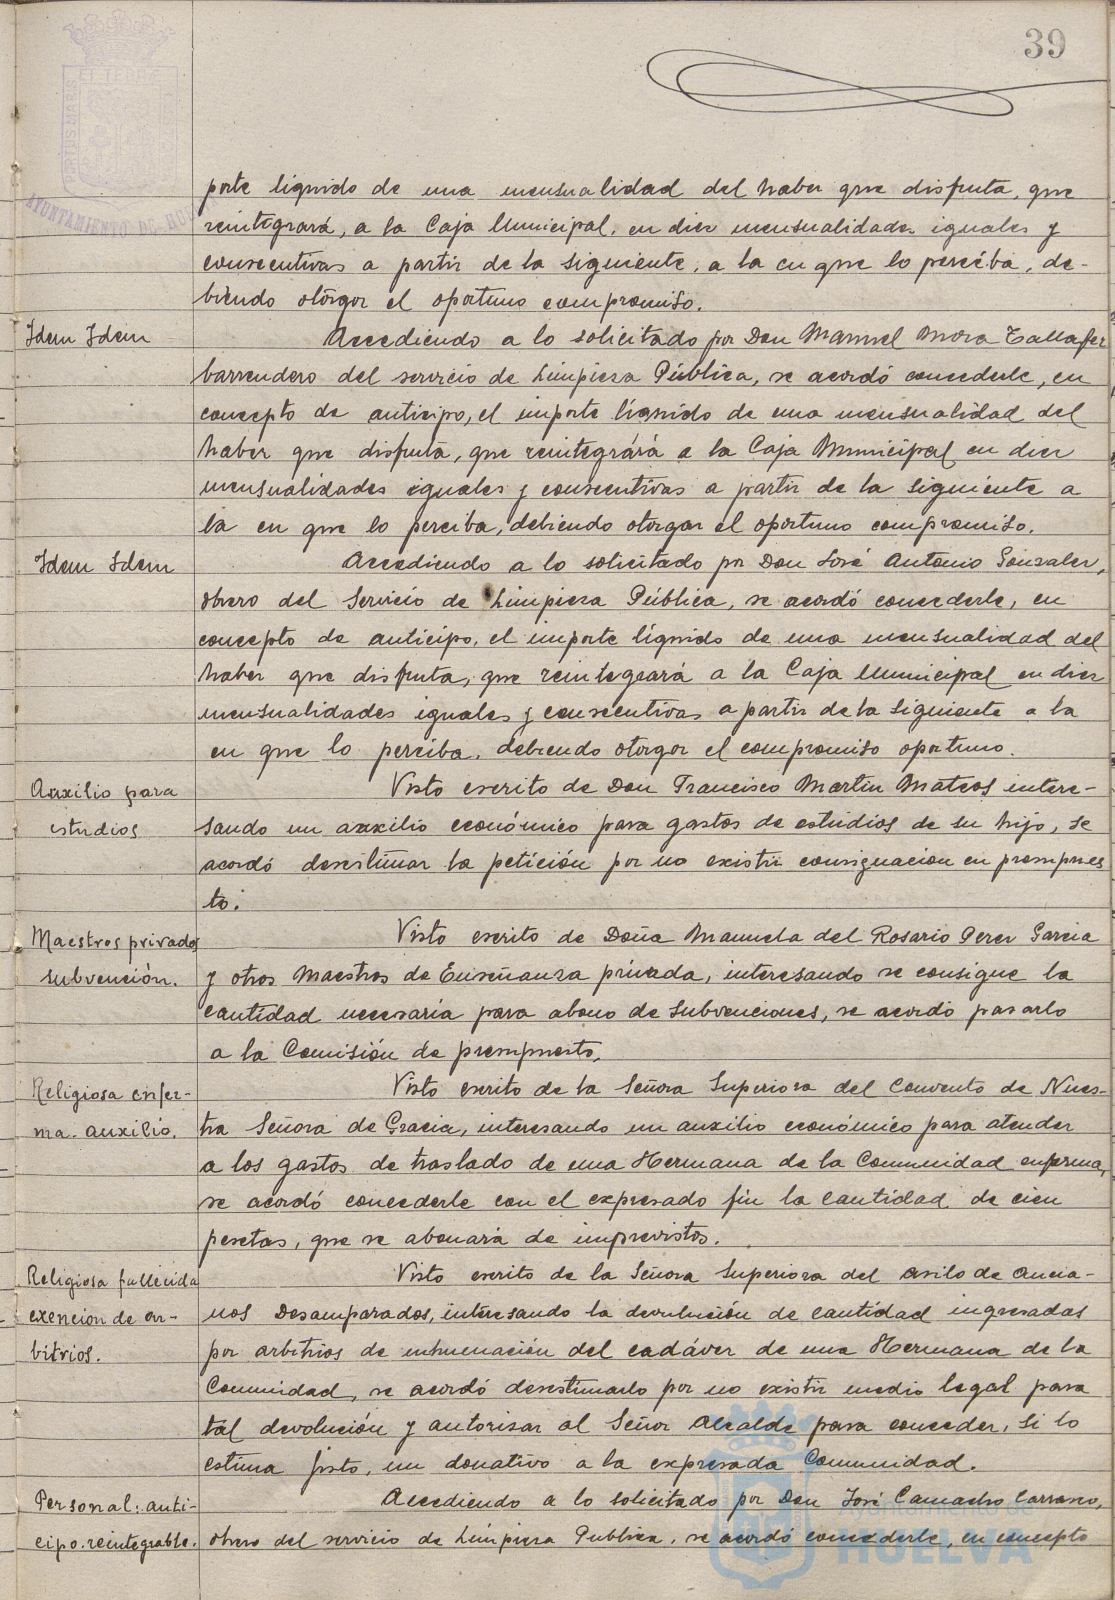 39
PORTUS MARIS
ET TERRÆ
AYUNTAMIENTO DE HUELVA
porte líquido de una mensualidad del haber que disfruta, que
reintegrará, a la Caja Municipal, en diez mensualidades iguales y
consecutivas a partir de la siguiente, a la en que lo perciba, de-
biendo otorgar el oportuno compromiso.
Idem Idem
Accediendo a lo solicitado por Don Manuel Mora
barrendero del servicio de Limpieza Pública, se acordó concederle, en
concepto de anticipo, el importe líquido de una mensualidad del
haber que disfruta, que reintegrará a la Caja Municipal en diez
mensualidades iguales y consecutivas a partir de la siguiente a
la en que lo perciba, debiendo otorgar el oportuno compromiso.
Idem Idem
Accediendo a lo solicitado por Don José Antonio Gonzalez,
obrero del Servicio de Limpieza Pública, se acordó concederle, en
concepto de anticipo, el importe líquido de una mensualidad del
haber que disfruta, que reintegrará a la Caja Municipal en diez
mensualidades iguales y consecutivas a partir de la siguiente a la
en que lo perciba, debiendo otorgar el compromiso oportuno.
Auxilio para
estudios
Visto escrito de Don Francisco Martin Mateos intere-
sando un auxilio económico para gastos de estudios de su hijo, se
acordó desestimar la petición por no existir consignacion en presupues
to.
Maestros privados
subvención.
Visto escrito de Doña Manuela del Rosario Perez Garcia
y otros Maestros de Enseñanza privada, interesando se consigne la
cantidad necesaria para abono de subvenciones, se acordó pasarlo
a la Comisión de presupuesto.
Religiosa enfer-
ma. auxilio.
Visto escrito de la Señora Superiora del Convento de Nues-
tra Señora de Gracia, interesando un auxilio económico para atender
a los gastos de traslado de una Hermana de la Comunidad enferma,
se acordó concederle con el expresado fin la cantidad de cien
pesetas, que se abonará de imprevistos.
Religiosa fallecida
exencion de ar-
bitrios.
Visto escrito de la Señora Superiora del asilo de ancia-
nos Desamparados, interesando la devolución de cantidad ingresadas
por arbitrios de inhumación del cadáver de una Hermana de la
Comunidad, se acordó desestimarlo por no existir medio legal para
tal devolución y autorizar al Señor Alcalde para conceder, si lo
estima justo, un donativo a la expresada Comunidad.
Personal: anti-
cipo reintegrable.
Accediendo a lo solicitado por Don José Camacho Carrasco,
obrero del servicio de Limpieza Publica, se acordó concederle, en concepto
Ayuntamiento de
HUELVA